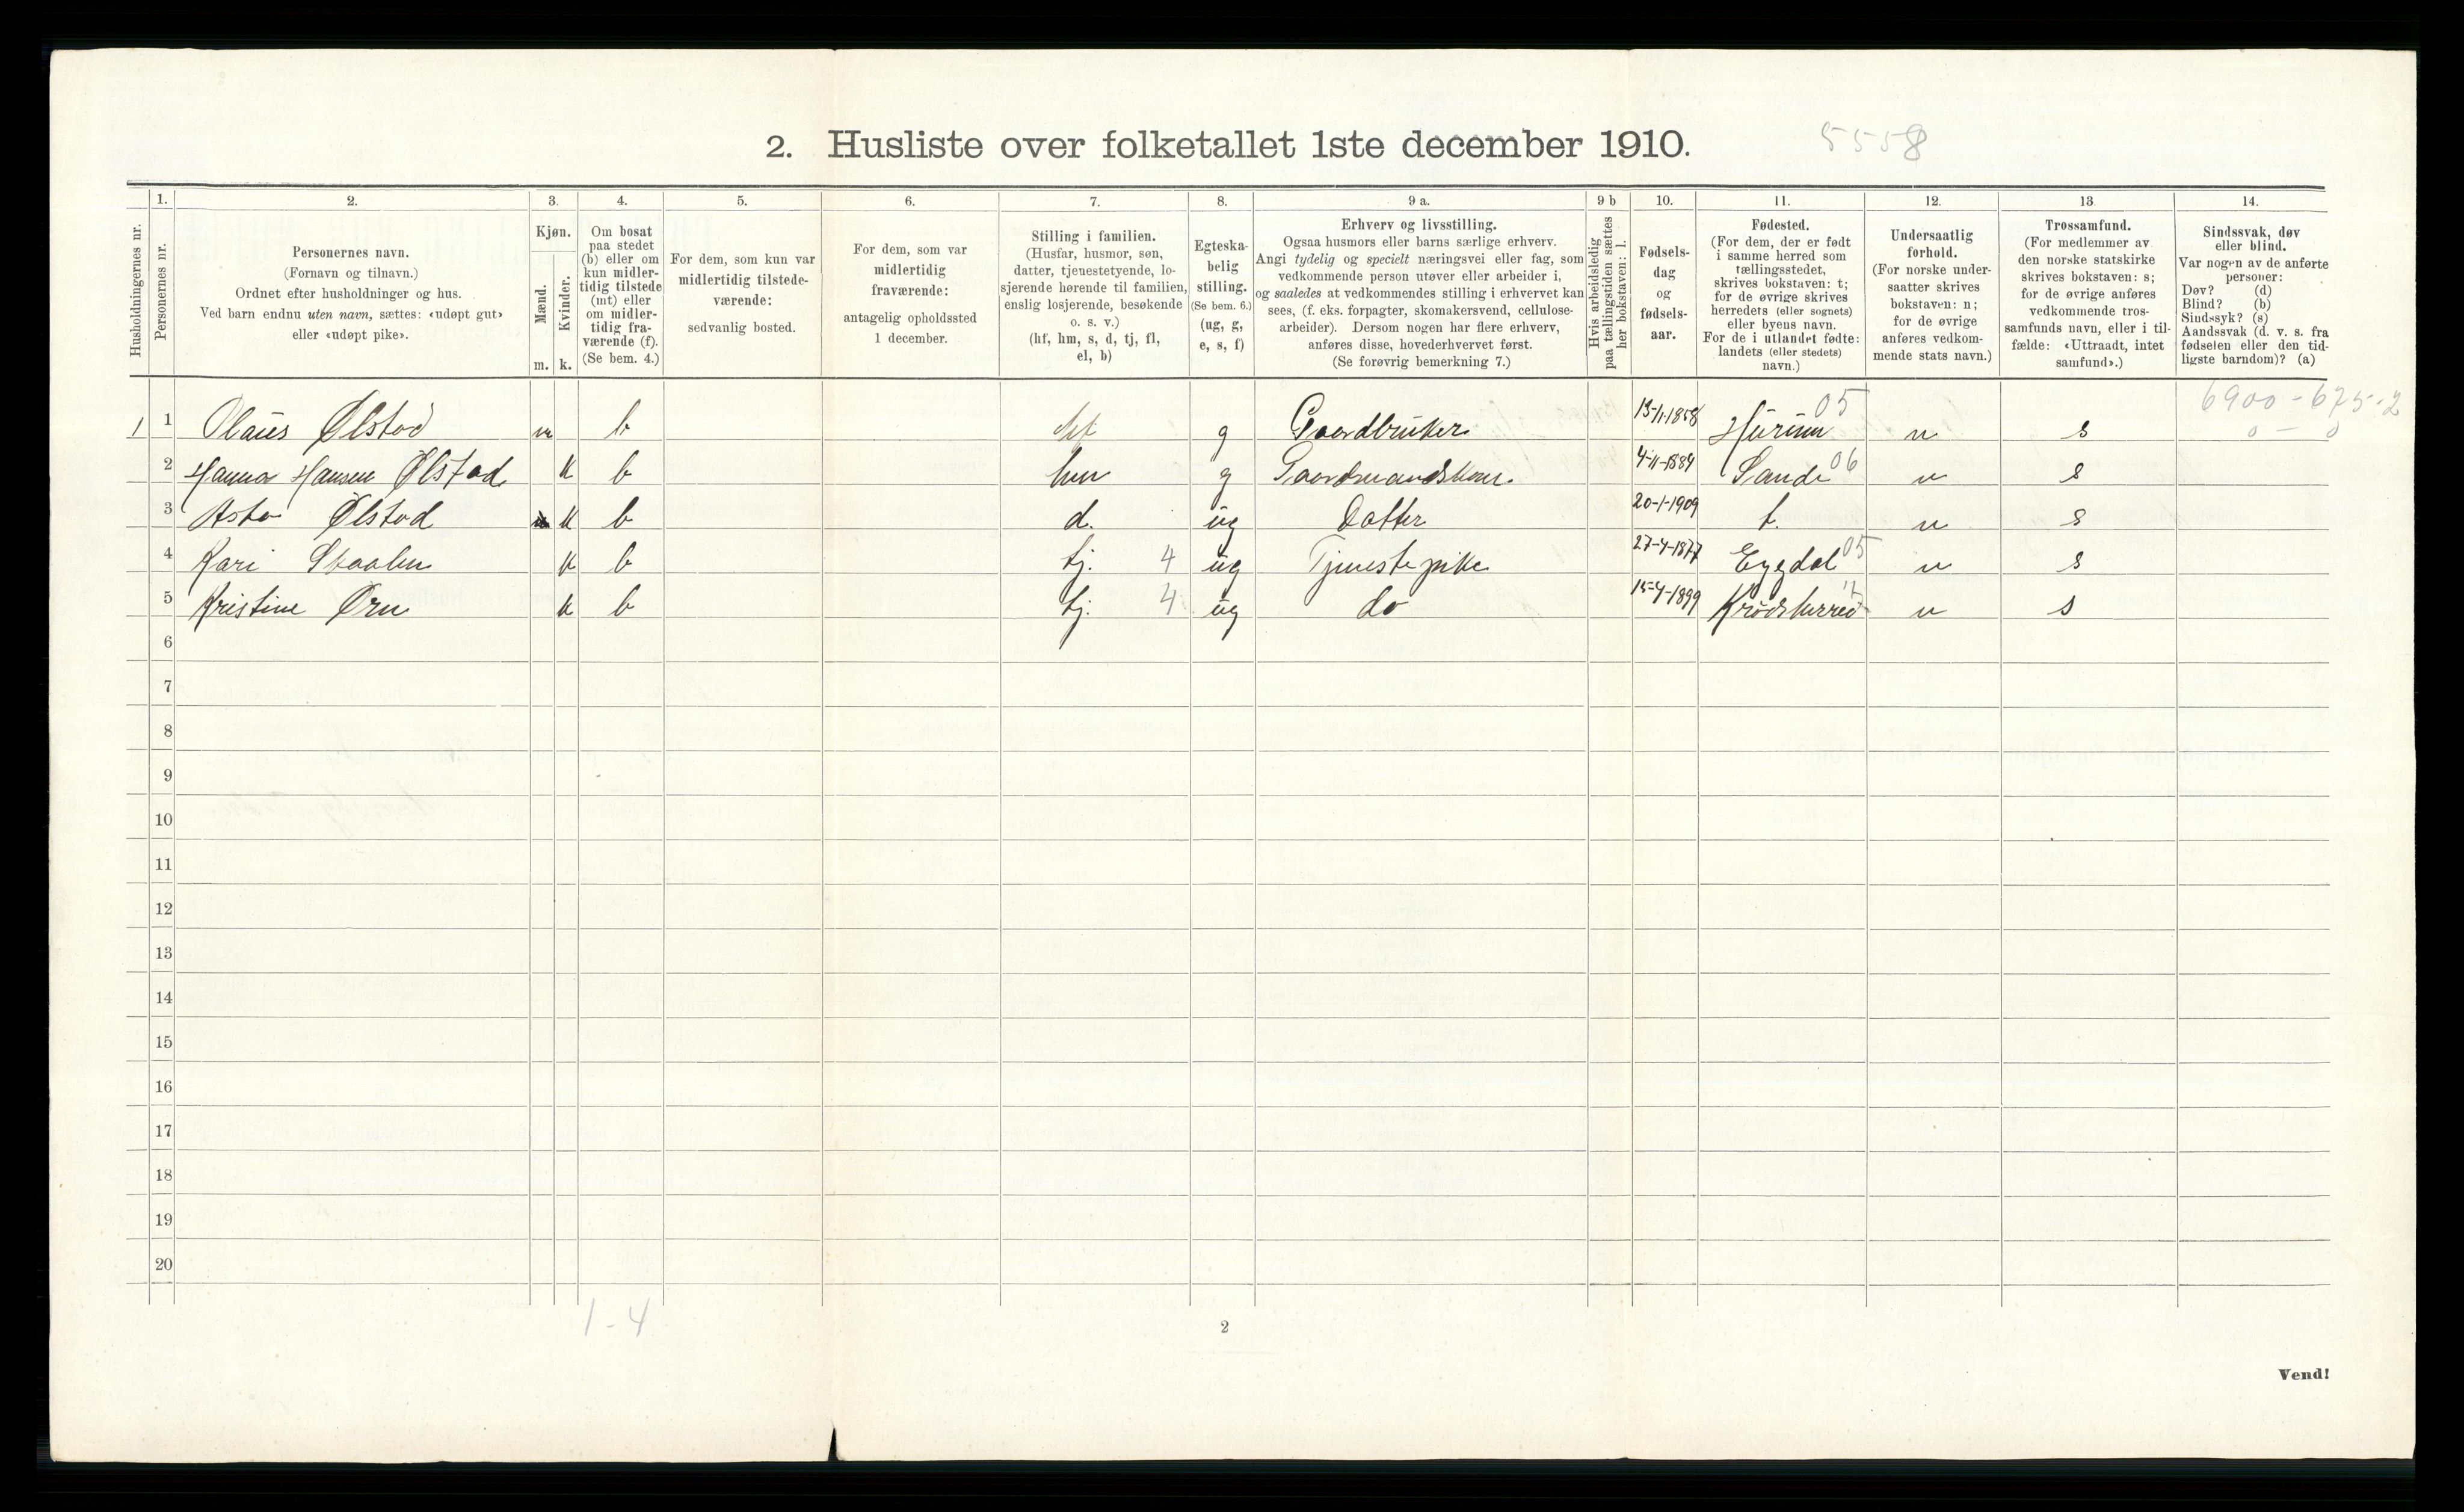 2. Husliste over folketallet 1ste december 1910. 5558
Husholdningernes nr.
1.
Personernes nr.
2.
Personernes navn.
(Fornavn og tilnavn.)
Ordnet efter husholdninger og hus.
Ved barn endnu uten navn, sættes: «udøpt gut»
eller «udøpt pike».
3.
Kjøn.
Mænd.
Kvinder.
m. k.
4.
Om bosat
paa stedet
(b) eller om
kun midler-
tidig tilstede
(mt) eller
om midler-
tidig fra-
værende (f).
(Se bem. 4.)
5.
For dem, som kun var
midlertidig tilstede-
værende:
sedvanlig bosted.
6.
For dem, som var
midlertidig
fraværende:
antagelig opholdssted
1 december.
7.
Stilling i familien.
(Husfar, husmor, søn,
datter, tjenestetyende, lo-
sjerende hørende til familien,
enslig losjerende, besøkende
o. s. v.)
(hf, hm, s, d, tj, fl,
el, b)
8.
Egteska-
belig
stilling.
(Se bem. 6.)
(ug, g,
e, s, f)
9 a.
Erhverv og livsstilling.
Ogsaa husmors eller barns særlige erhverv.
Angi tydelig og specielt næringsvei eller fag, som
vedkommende person utøver eller arbeider i,
og saaledes at vedkommendes stilling i erhvervet kan
sees, (f. eks. forpagter, skomakersvend, cellulose-
arbeider). Dersom nogen har flere erhverv,
anføres disse, hovederhvervet først.
(Se forøvrig bemerkning 7.)
9 b
Hvis arbeidsledig
paa tællingstiden sættes
her bokstaven: l.
10.
Fødsels-
dag
og
fødsels-
aar.
11.
Fødested.
(For dem, der er født
i samme herred som
tællingsstedet,
skrives bokstaven: t;
for de øvrige skrives
herredets (eller sognets)
eller byens navn.
For de i utlandet fødte:
landets (eller stedets)
navn.)
12.
Undersaatlig
forhold.
(For norske under-
saatter skrives
bokstaven: n;
for de øvrige
anføres vedkom-
mende stats navn.)
13.
Trossamfund.
(For medlemmer av
den norske statskirke
skrives bokstaven: s;
for de øvrige anføres
vedkommende tros-
samfunds navn, eller i til-
fælde: «Uttraadt, intet
samfund».)
14.
Sindssvak, døv
eller blind.
Var nogen av de anførte
personer:
Døv? (d)
Blind? (b)
Sindssyk? (s)
Aandssvak (d. v. s. fra
fødselen eller den tid-
ligste barndom)? (a)
6900 - 675-2
0 - 0
1 1 Olaus Ølstad m b hf g Gaardbruker 13-11-1858 Hurum 05 n s
2 Hanna Hansen Ølstad k b hm g Gaardmandskone. 4-11-1884 Sande 06 n s
3 Asta Ølstad k b d. ug Datter 20-1-1909 t. n s
4 Kari Skaalen k b tj. 4 ug Tjenestepike 27-4-1877 Eggdal 05 n s
5 Kristine Ørn k b tj. 4 ug do 15-4-1899 Krødsherred n s
6
7
8
9
10
11
12
13
14
15
16
17
18
19
20
1-4
2
Vend!